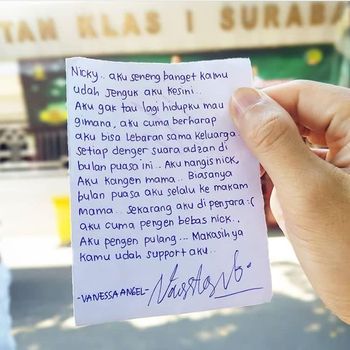 TAN KLAS I SURABA
Nicky.. aku seneng banget kamu
udah jenguk aku kesini..
Aku gak tau lagi hidupku mau
gimana, aku cuma berharap
aku bisa lebaran sama keluarga.
setiap denger suara adzan di
bulan puasa ini.. Aku nangis nick,
Aku kangen mama.. Biasanya
bulan puasa aku selalu ke makam
mama.. sekarang aku di penjara :(
aku cuma pengen bebas nick..
Aku pengen pulang... Makasih ya
kamu udah support aku..
-VANESSA ANGEL-